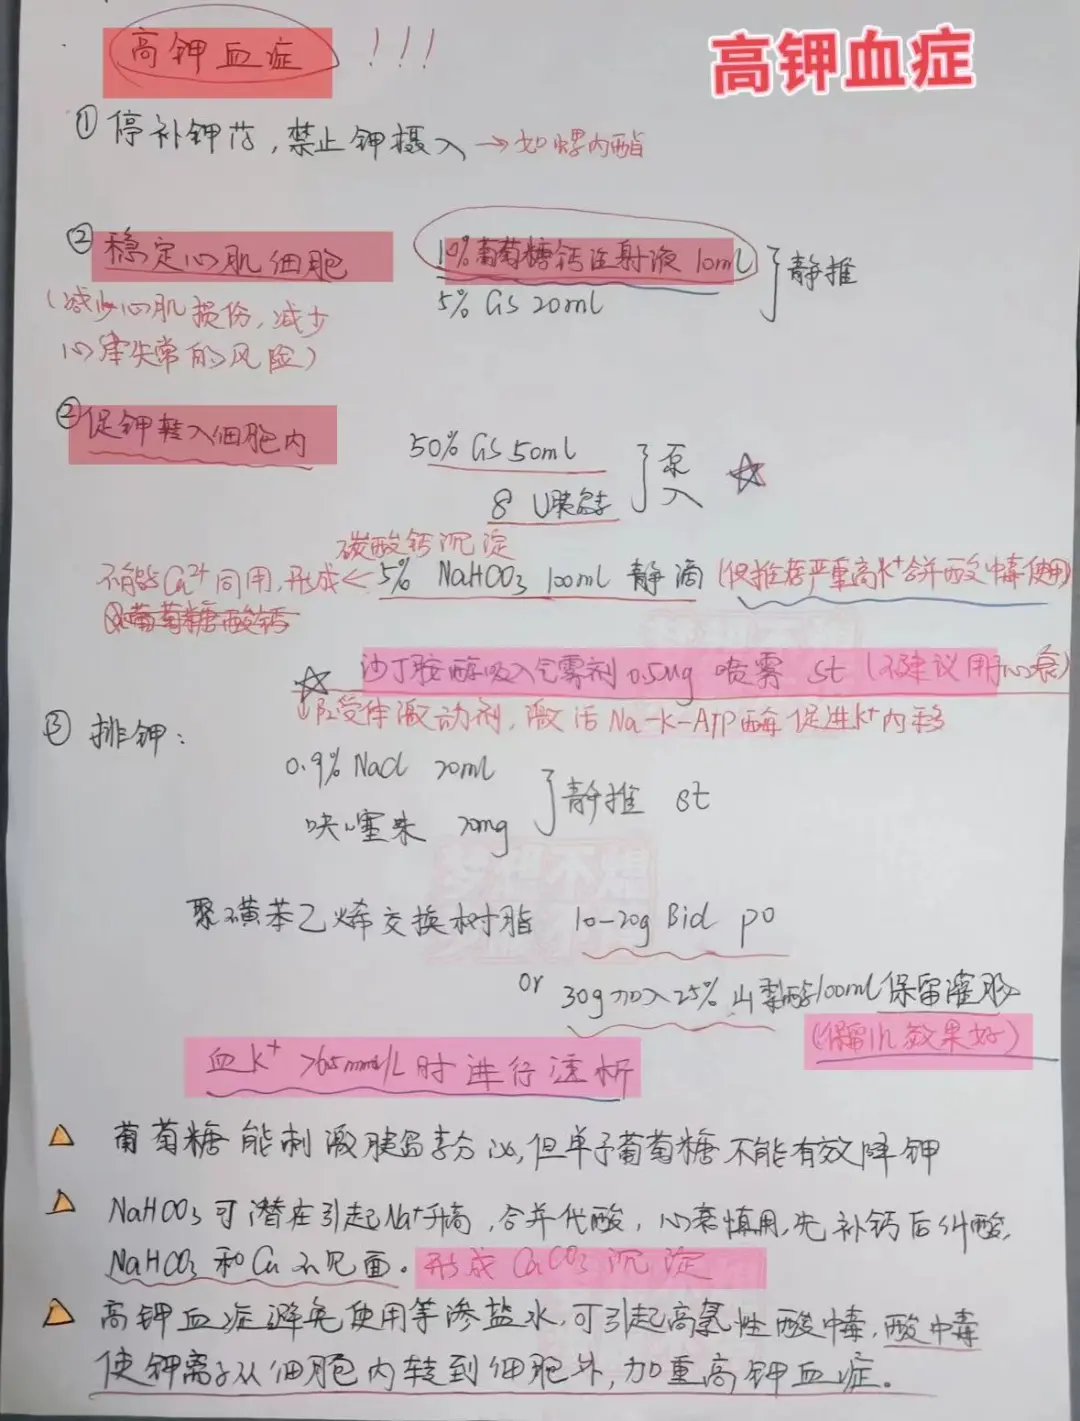 高钾血症 !!!
高钾血症
①停补钾药，禁止钾摄入 →如螺内酯
②稳定心肌细胞
(减少心肌损伤，减少
心率失常的风险)
10%葡萄糖钙注射液 10ml
5% GS 20ml
静推
②促钾转入细胞内
50% GS 50ml
8 U胰岛素
泵入
碳酸钙沉淀
不能与Ca²⁺同用，形成← 5% NaHCO₃ 100ml 静滴 (但推荐严重高K⁺合并酸中毒使用)
葡萄糖酸钙
沙丁胺醇吸入气雾剂 0.5mg 喷雾 st (不建议用于心衰)
↓β₂受体激动剂，激活Na-K-ATP酶 促进K⁺内移
③ 排钾：
0.9% Nacl 20ml
呋塞米 20mg
静推 st
聚磺苯乙烯交换树脂 10-20g Bid po
or 30g加入25%山梨醇100ml保留灌肠
(保留1h效果好)
血K⁺ >6.5mmol/L时进行透析
△ 葡萄糖能刺激胰岛素分泌，但单予葡萄糖不能有效降钾
△ NaHCO₃可潜在引起Na⁺升高，合并代酸，心衰慎用，先补钙后纠酸，
NaHCO₃和Ca不见面。形成CaCO₃沉淀
△ 高钾血症避免使用等渗盐水，可引起高氯性酸中毒，酸中毒
使钾离子从细胞内转到细胞外，加重高钾血症。